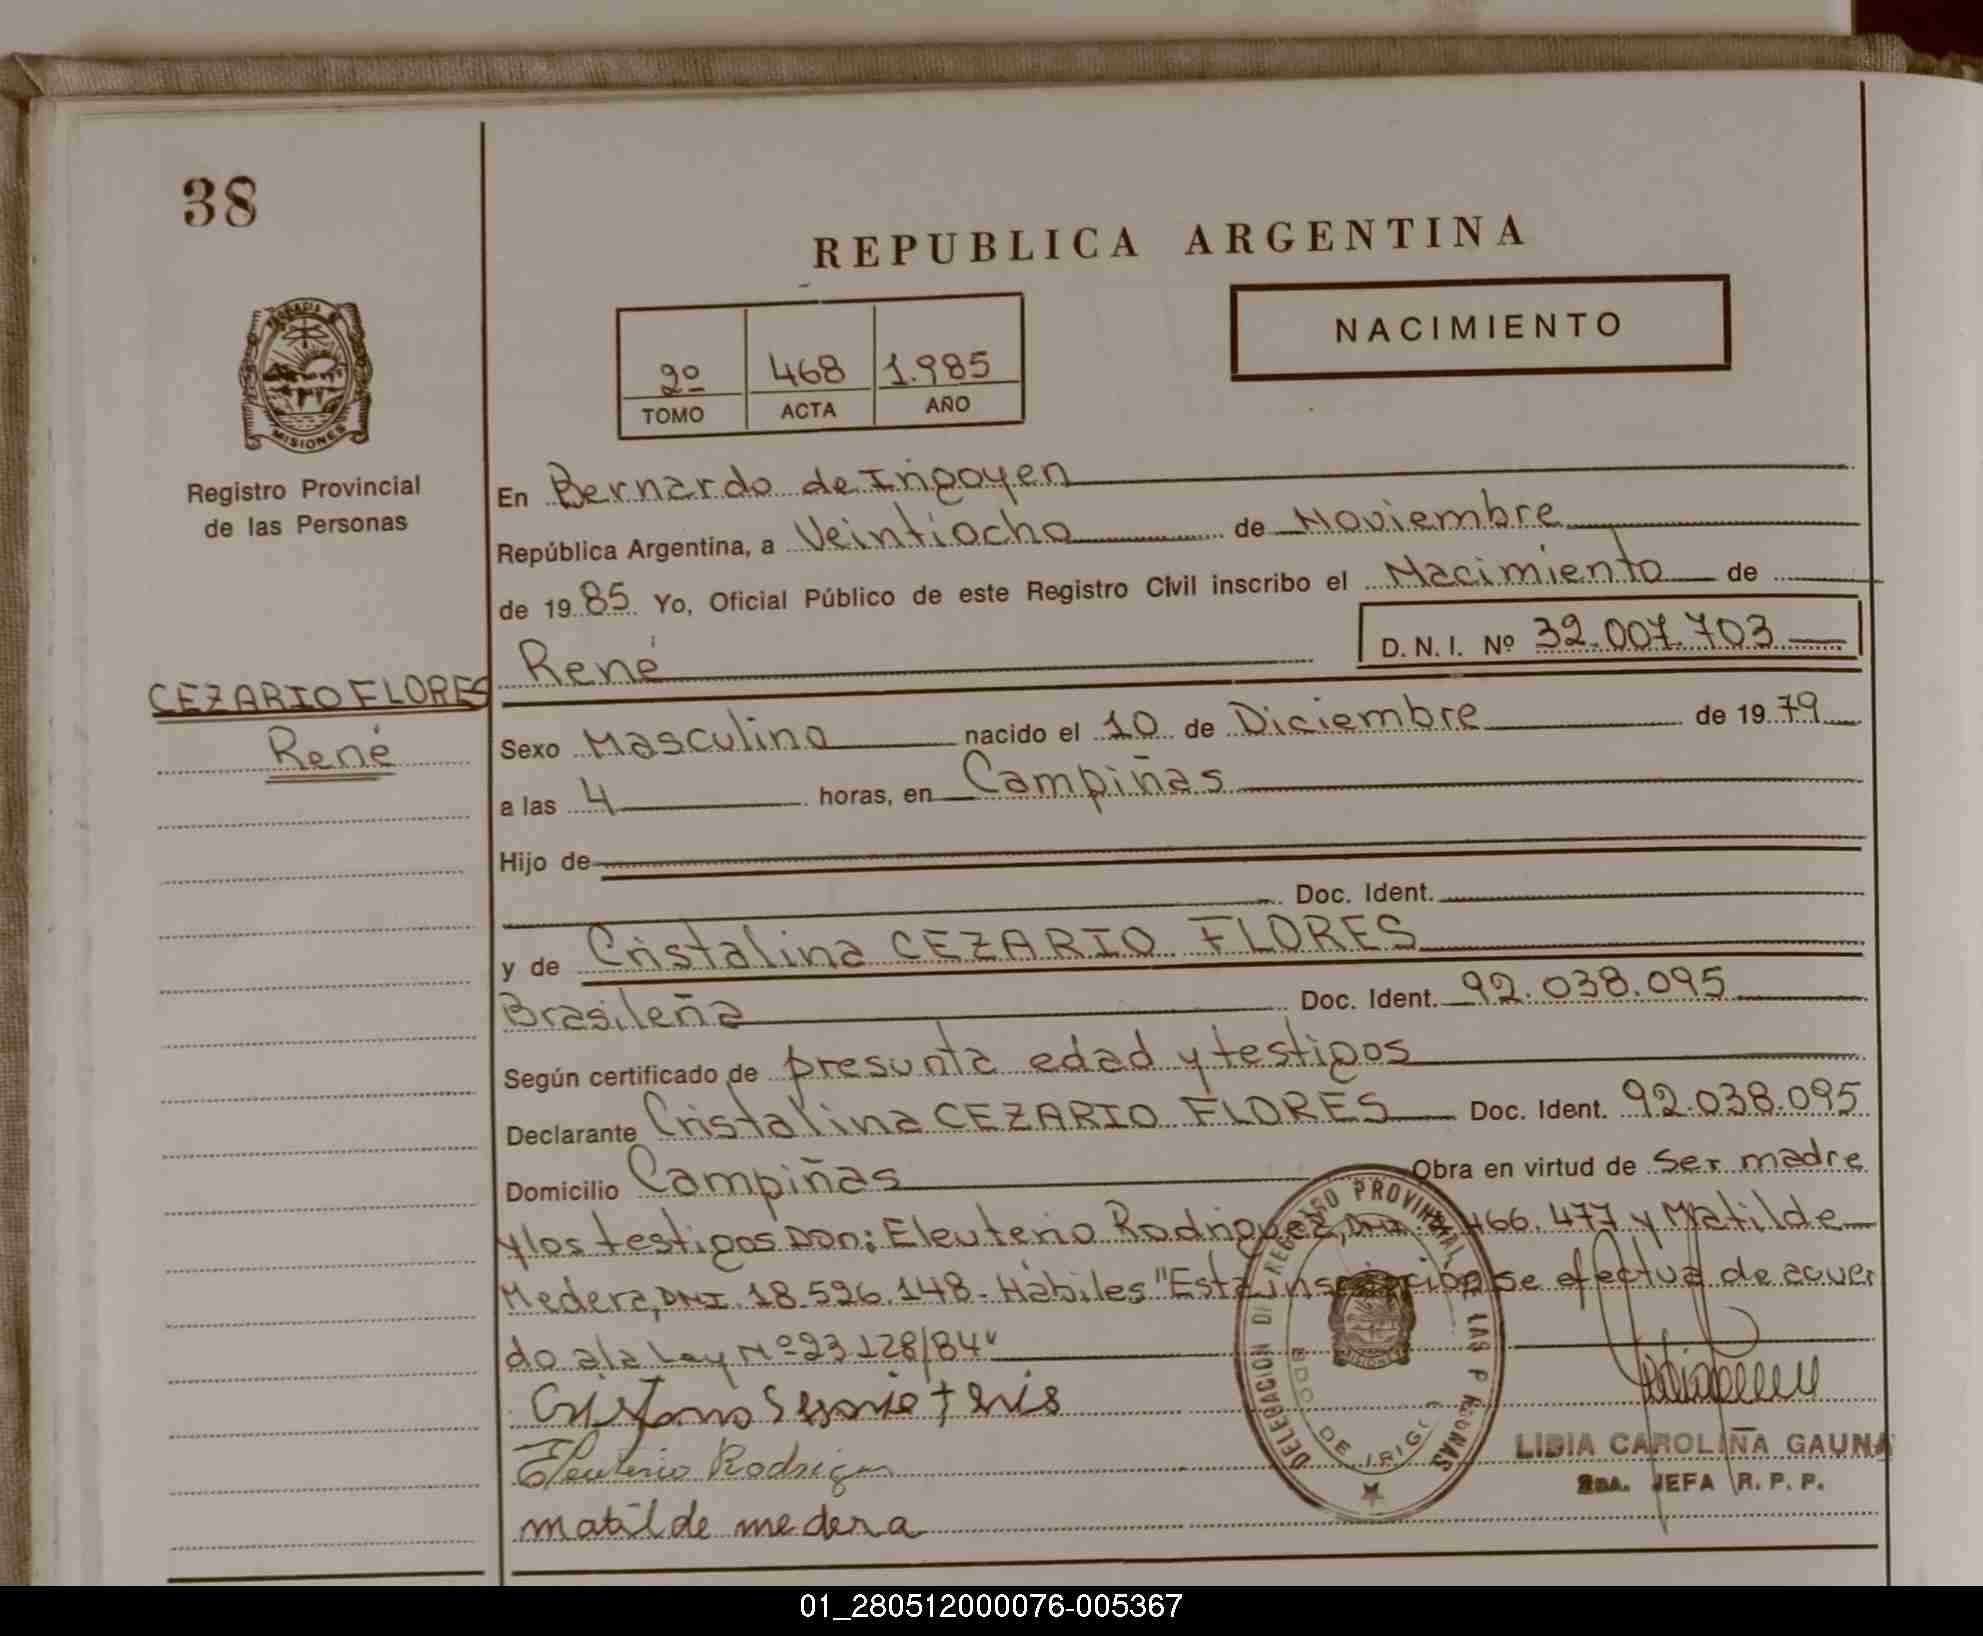 38
REPUBLICA ARGENTINA
NACIMIENTO
2º 468 1.985
TOMO ACTA AÑO
MISIONES
Registro Provincial
de las Personas
En Bernardo de Irigoyen
República Argentina, a Veintiocho de Noviembre
de 1985 Yo, Oficial Público de este Registro Civil inscribo el Nacimiento de
René D. N. I. Nº 32.007.703
CEZARIO FLORES
René
Sexo Masculino nacido el 10 de Diciembre de 1979
a las 4 horas, en Campiñas
Hijo de
Doc. Ident.
y de Cristalina CEZARIO FLORES
Brasileña Doc. Ident. 92.038.095
Según certificado de presunta edad y testigos
Declarante Cristalina CEZARIO FLORES Doc. Ident. 92.038.095
Domicilio Campiñas Obra en virtud de Ser madre
y los testigos Don: Eleuterio Rodriguez, DNI. 466.477 y Matilde
Medera, DNI. 18.596.148- Hábiles "Esta inscripción se efectua de acuer
do a la Ley Nº 23 128/84"
Eleuterio Rodrigue
matilde medera
DELEGACION DE REGISTRO PROVINCIAL DE LAS PERSONAS
BDO. DE IRIG.
LIDIA CAROLINA GAUNA
2DA. JEFA R. P. P.
01_280512000076-005367